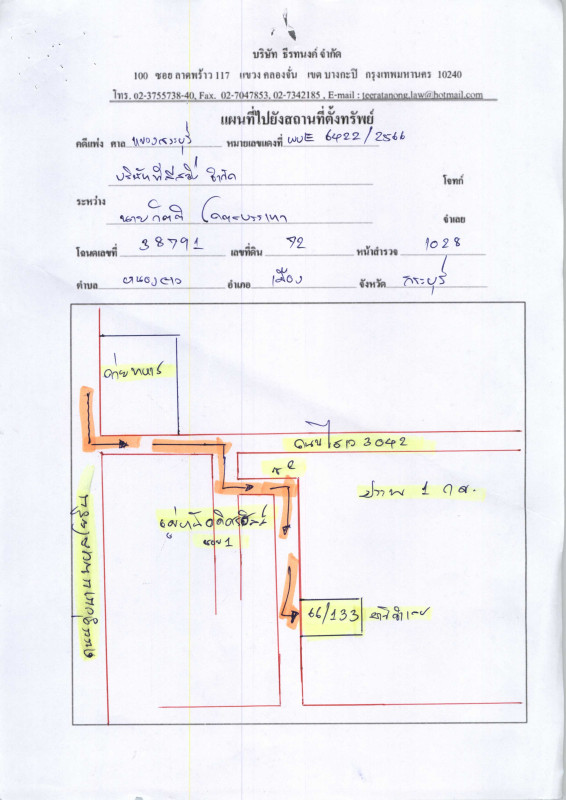 บริษัท ธีรทนงค์ จำกัด
100 ซอย ลาดพร้าว 117 แขวง คลองจั่น เขต บางกะปิ กรุงเทพมหานคร 10240
โทร. 02-3755738-40, Fax. 02-7047853, 02-7342185 , E-mail : teeratanong.law@hotmail.com
แผนที่ไปยังสถานที่ตั้งทรัพย์
คดีแพ่ง ศาล แขวงสระบุรี หมายเลขแดงที่ ผบE 6422/2566
จำกัด โจทก์
ระหว่าง
นาย จำเลย
โฉนดเลขที่ 38791 เลขที่ดิน 72 หน้าสำรวจ 1028
ตำบล อำเภอ เมือง จังหวัด สระบุรี
ค่ายทหาร
ถนน 3042
ซ 2
1
ซอย 1
66/133